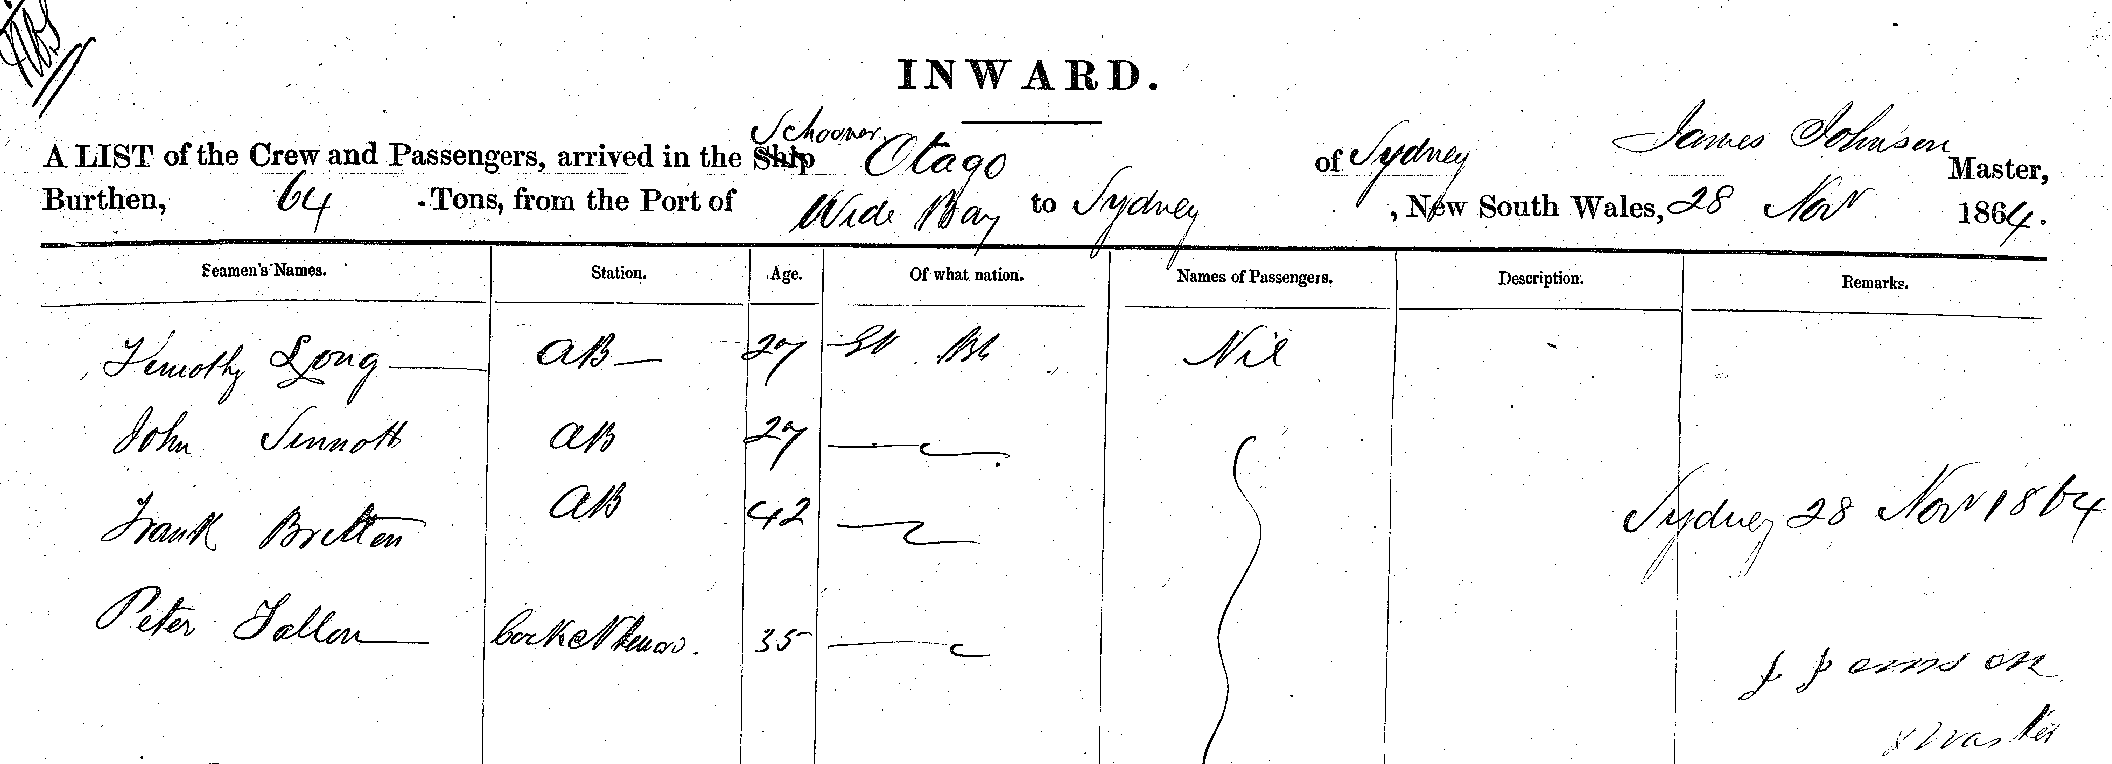 INWARD.
Schooner
A LIST of the Crew and Passengers, arrived in the Ship Otago of Sydney James Johnson Master,
Burthen, 64 Tons, from the Port of Wide Bay to Sydney, New South Wales, 28 Nov 1864.
Seamen's Names. Station. Age. Of what nation. Names of Passengers. Description. Remarks.
Timothy Long AB 27 Nil
John Sinnott AB 27
Frank Britten AB 42
Sydney 28 Nov 1864
Peter Fallon 35
J
Master